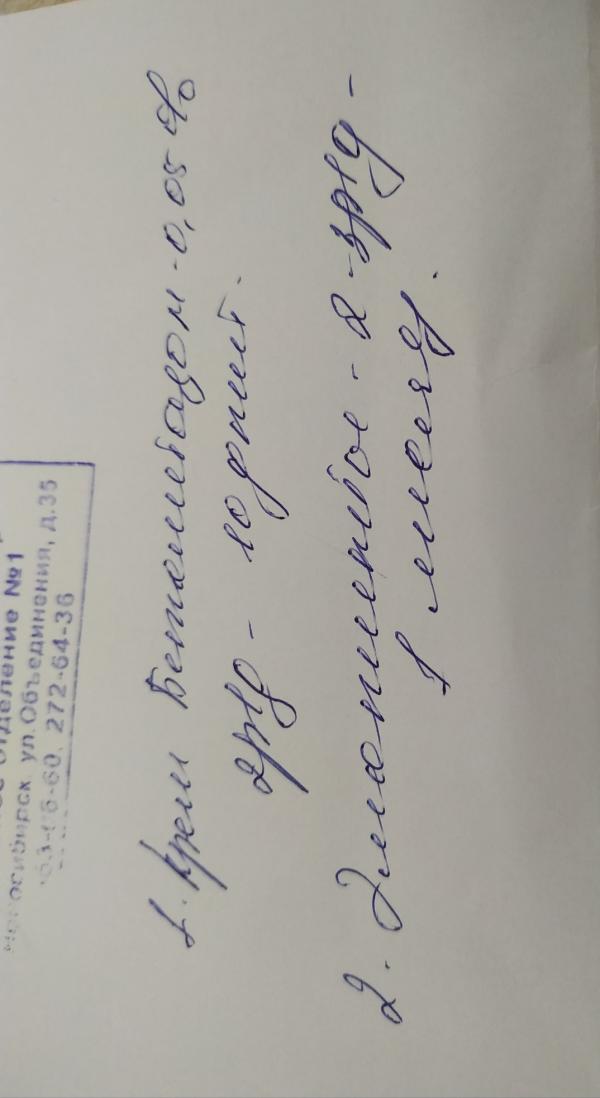 отделение №1
Новосибирск ул.Объединения, д.35
272-64-36
1. Крем Бетаметазон - 0,05 %
2р/д - 10 дней.
2. Эмолиенты - 2-3р/д -
1 месяц.